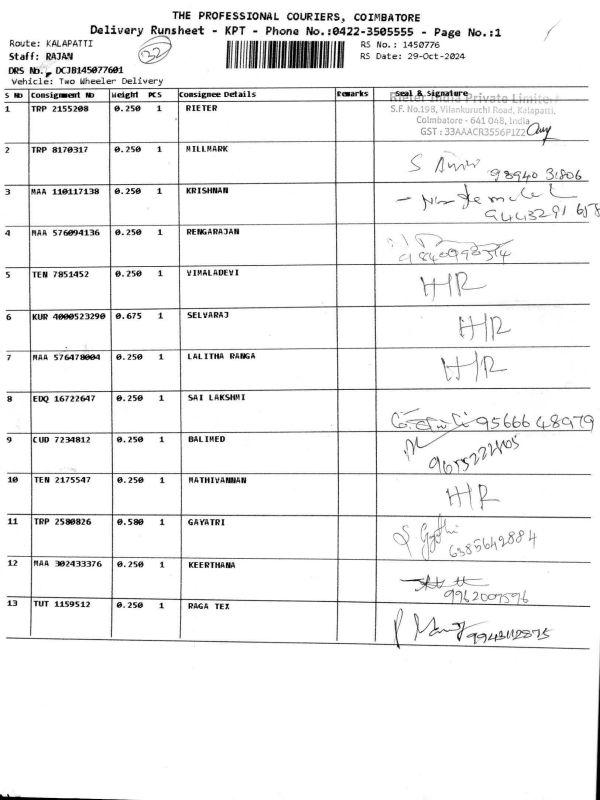 THE PROFESSIONAL COURIERS, COIMBATORE
Delivery Runsheet - KPT - Phone No.:0422-3505555 - Page No.:1
Route: KALAPATTI
32
RS No.: 1450776
Staff: RAJAN
RS Date: 29-Oct-2024
DRS No. DCJB145077601
Vehicle: Two Wheeler Delivery
S No Consignment No Weight PCS Consignee Details Remarks Seal & Signature
Rieter India Private Limited
1 TRP 2155208 0.250 1 RIETER
S.F. No.198, Vilankuruchi Road, Kalapatti,
Coimbatore - 641 048, India
GST : 33AAACR3556P1Z2
2 TRP 8170317 0.250 1 MILLMARK
98940 31806
3 MAA 110117138 0.250 1 KRISHNAN
9443291 658
4 MAA 576094136 0.250 1 RENGARAJAN
5 TEN 7851452 0.250 1 VIMALADEVI H/R
6 KUR 4000523290 0.675 1 SELVARAJ H/R
7 MAA 576478004 0.250 1 LALITHA RANGA H/R
8 EDQ 16722647 0.250 1 SAI LAKSHMI
95666 48979
9 CUD 7234812 0.250 1 BALIMED
10 TEN 2175547 0.250 1 MATHIVANNAN H/R
11 TRP 2580826 0.580 1 GAYATRI
6385642884
12 MAA 302433376 0.250 1 KEERTHANA
9962007596
13 TUT 1159512 0.250 1 RAGA TEX